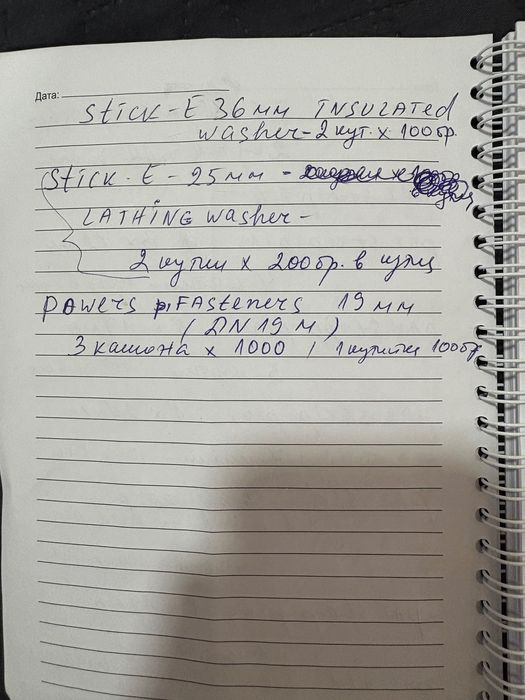 Дата:
Stick-E 36мм INSULATEd
washer-2 кут. x 100бр.
Stick-E-25мм -
LATHING washer-
2 кутии x 200бр. в кутия
POWERS FASteners 19мм
3 кашона x 1000 / 1 кутийка 100бр